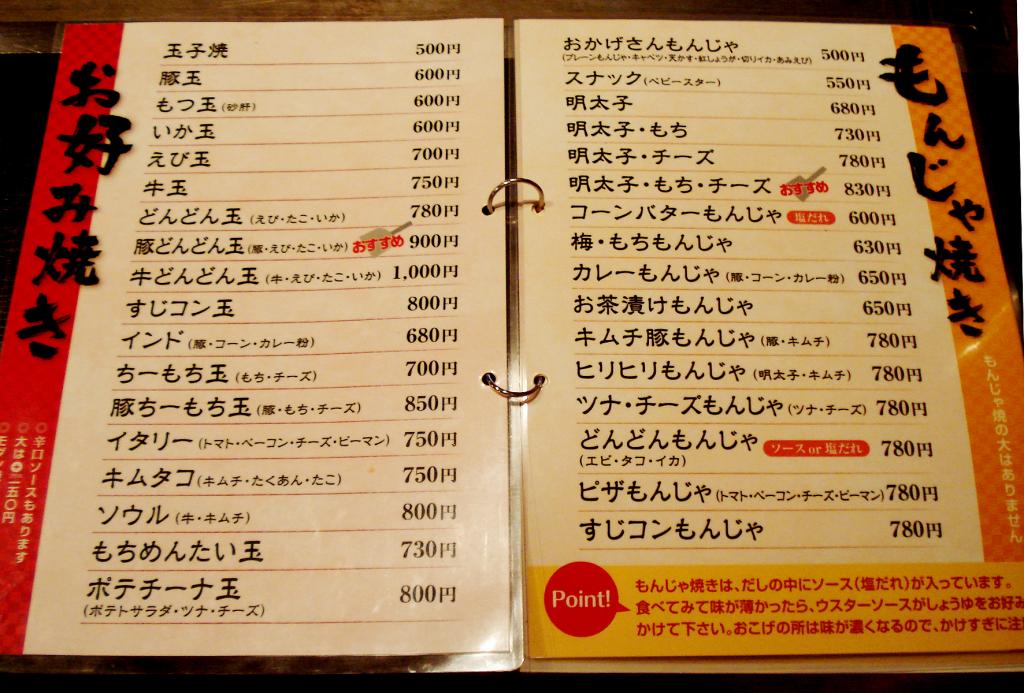 お好み焼き
玉子焼 500円
豚玉 600円
もつ玉(砂肝) 600円
いか玉 600円
えび玉 700円
牛玉 750円
どんどん玉(えび・たこ・いか) 780円
豚どんどん玉(豚・えび・たこ・いか) おすすめ 900円
牛どんどん玉(牛・えび・たこ・いか) 1,000円
すじコン玉 800円
インド(豚・コーン・カレー粉) 680円
ちーもち玉(もち・チーズ) 700円
豚ちーもち玉(豚・もち・チーズ) 850円
イタリー(トマト・ベーコン・チーズ・ピーマン) 750円
キムタコ(キムチ・たくあん・たこ) 750円
ソウル(牛・キムチ) 800円
もちめんたい玉 730円
ポテチーナ玉 800円
(ポテトサラダ・ツナ・チーズ)
○辛口ソースもあります
○大は+二五〇円
もんじゃ焼き
おかげさんもんじゃ 500円
(プレーンもんじゃ・キャベツ・天かす・紅しょうが・切りイカ・あみえび)
スナック(ベビースター) 550円
明太子 680円
明太子・もち 730円
明太子・チーズ 780円
明太子・もち・チーズ おすすめ 830円
コーンバターもんじゃ 塩だれ 600円
梅・もちもんじゃ 630円
カレーもんじゃ(豚・コーン・カレー粉) 650円
お茶漬けもんじゃ 650円
キムチ豚もんじゃ(豚・キムチ) 780円
ヒリヒリもんじゃ(明太子・キムチ) 780円
ツナ・チーズもんじゃ(ツナ・チーズ) 780円
どんどんもんじゃ ソース or 塩だれ 780円
(エビ・タコ・イカ)
ピザもんじゃ(トマト・ベーコン・チーズ・ピーマン) 780円
すじコンもんじゃ 780円
もんじゃ焼の大はありません
Point!
もんじゃ焼きは、だしの中にソース(塩だれ)が入っています。
食べてみて味が薄かったら、ウスターソースがしょうゆをお好み
かけて下さい。おこげの所は味が濃くなるので、かけすぎに注